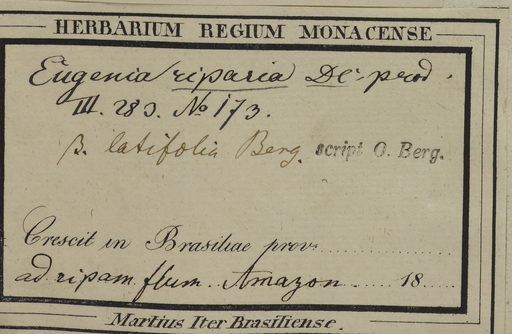 HERBARIUM REGIUM MONACENSE
Eugenia riparia DC. prod.
III. 283. No 173.
β. latifolia Berg. script O. Berg.
Crescit in Brasiliae prov.
ad ripam flum. Amazon. 18
Martius Iter Brasiliense.